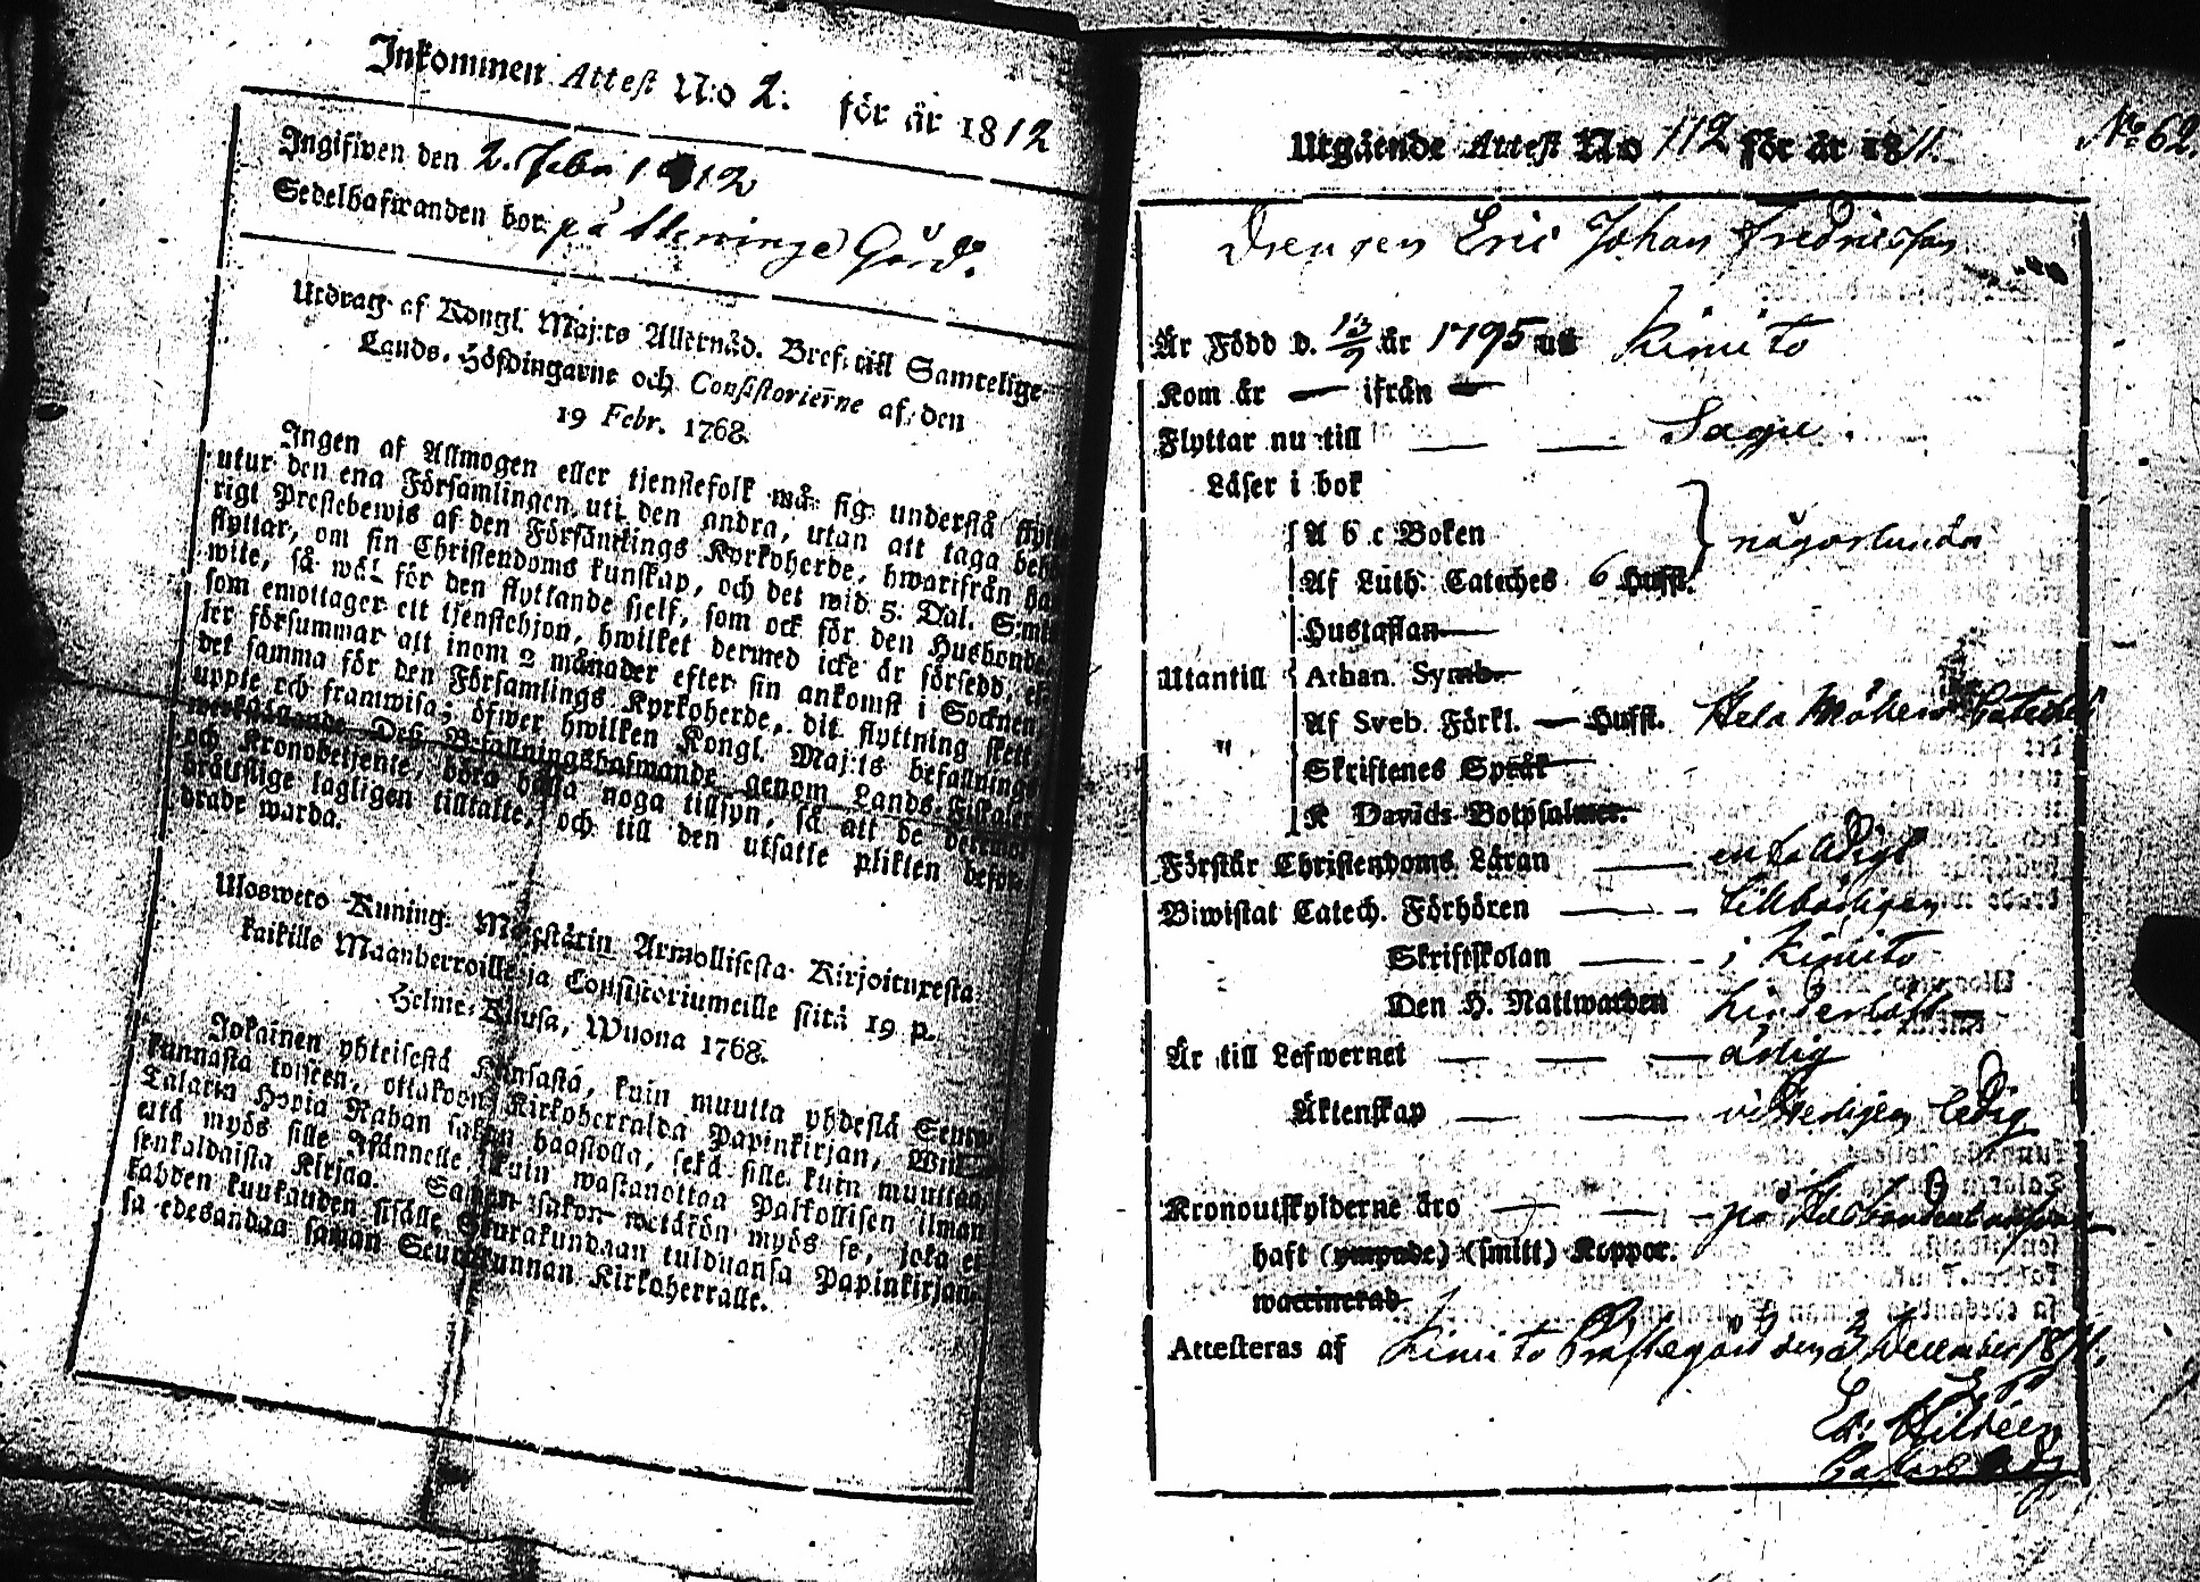 Inkommen Attest N:o 2. för år 1812
Ingifwen den 2. Febr 1812
Sedelhafwanden bor på Gård.
Utdrag af Kongl. Maj:ts Allernåd. Bref till Samtelige
Lands-Höfdingarne och Consistorierne af den
19 Febr. 1768.
Ingen af Allmogen eller tjenstefolk må sig understå
utur den ena Församlingen uti den andra, utan att taga
rigt Prestebewis af den Församlings Kyrkoherde, hwarifrån
flyttar, om sin Christendoms kunskap, och det wid 5. Dal. S:mt
wite, så wäl för den flyttande sjelf, som ock för den Husbonde,
som emottager ett tjenstehjon, hwilket dermed icke är försedd,
ler försummar att inom 2 månader efter sin ankomst i Socknen
det samma för den Församlings Kyrkoherde, dit flyttning skett
uppte och framwisa; öfwer hwilken Kongl. Maj:ts befallnings
werkställande Dess Befallningshafwande genom Lands-Fiskaler
och Kronobetjente, böra hålla noga tillsyn, så att de deremot
bråttslige lagligen tilltalte, och till den utsatte plikten befor-
drade warda.
Ulosweto Kuning. Majestätin Armollisesta Kirjoituxesta
kaikille Maanherroille ja Consistoriumeille siitä 19 p.
Helme-Kuusa, Wuona 1768.
Jokainen yhteisestä Kansasta, kuin muutta yhdestä Seura-
kunnasta toiseen, ottakoon Kirkoherralda Papinkirjan, Wiiden
Talarin Hopia Rahan sakon haastolla, sekä sille kuin muuttaa,
että myös sille Isännelle, kuin wastanottaa Palkollisen ilman
senkaldaista Kirjaa. Saman sakon wetäkön myös se, joka ei
kahden kuukauden sisälle Seurakundaan tulduansa Papinkirjan-
sa edesandaa saman Seurakunnan Kirkoherralle.
Utgående Attest No 112 för år 1811.
No 62.
Drengen Eric Johan Fredricsson
Är Född d. 13/9 år 1795 uti Kimito
Kom år — ifrån —
Flyttar nu till — — Sagu.
Läser i bok
A b c Boken
någorlunda
Af Luth. Cateches 6 Hufst.
Hustaflan
Utantill Athan. Symb.
Af Sveb. Förkl. — Hufst. Hela Möllers Cateches
Skriftenes Språk
K Davids Botpsalmer.
Förstår Christendoms Läran —— enfaldigt
Biwistat Catech. Förhören —— tillbörligen
Skriftskolan —— i Kimito
Den H. Nattwarden
Är till Lefwernet — — — ärlig
Äktenskap — — — ledig
Kronoutskylderne äro — — på
haft (ympade) (smitt) Koppor.
waccinerad.
Attesteras af Kimito Prästegård den 3 December 1811.